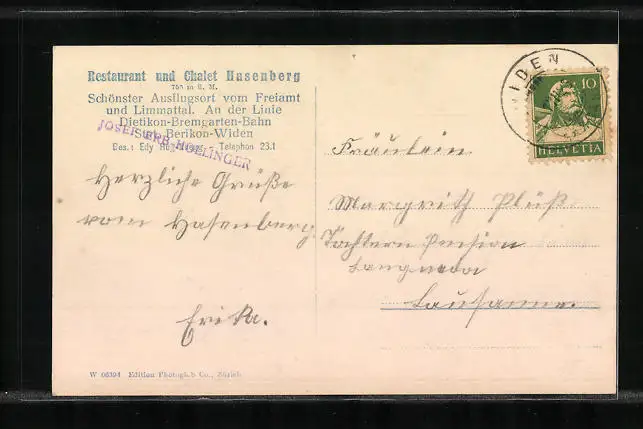 Restaurant und Chalet Hasenberg
Schönster Ausflugsort vom Freiamt
und Limmattal. An der Linie
Dietikon-Bremgarten-Bahn
Berikon-Widen
Bes.: Edy Telephon 23.1
JOSEF ERB-HOLLINGER
Herzliche Grüße
vom Hasenberg.
Erika.
W 06394 Edition Photoglob Co., Zürich
WIDEN
10
HELVETIA
Fräulein
Margrith Plüß
Töchtern Pension
Lausanne.